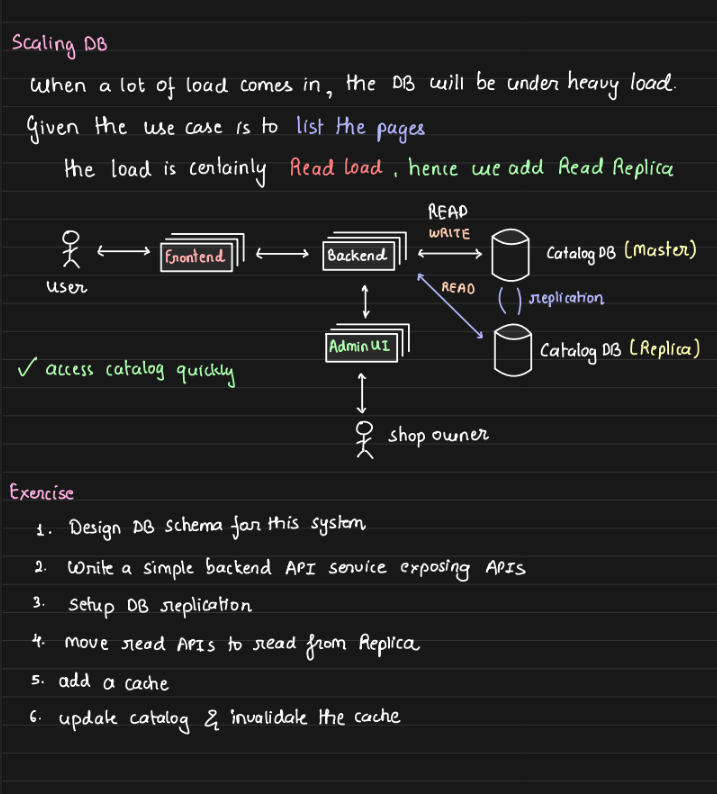 Scaling DB
When a lot of load comes in, the DB will be under heavy load.
Given the use case is to list the pages
the load is certainly Read Load, hence we add Read Replica
READ
WRITE
Frontend
Backend
Catalog DB (Master)
user
READ
( ) replication
Admin UI
Catalog DB (Replica)
✓ access catalog quickly
shop owner
Exercise
1. Design DB schema for this system
2. Write a simple backend API service exposing APIs
3. Setup DB replication
4. move read APIs to read from Replica
5. add a cache
6. update catalog & invalidate the cache